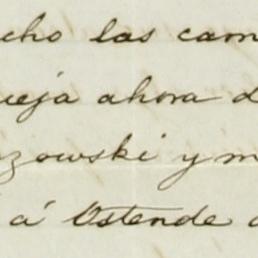 cho las cam
ueja ahora d
zowski y m
á Ostende